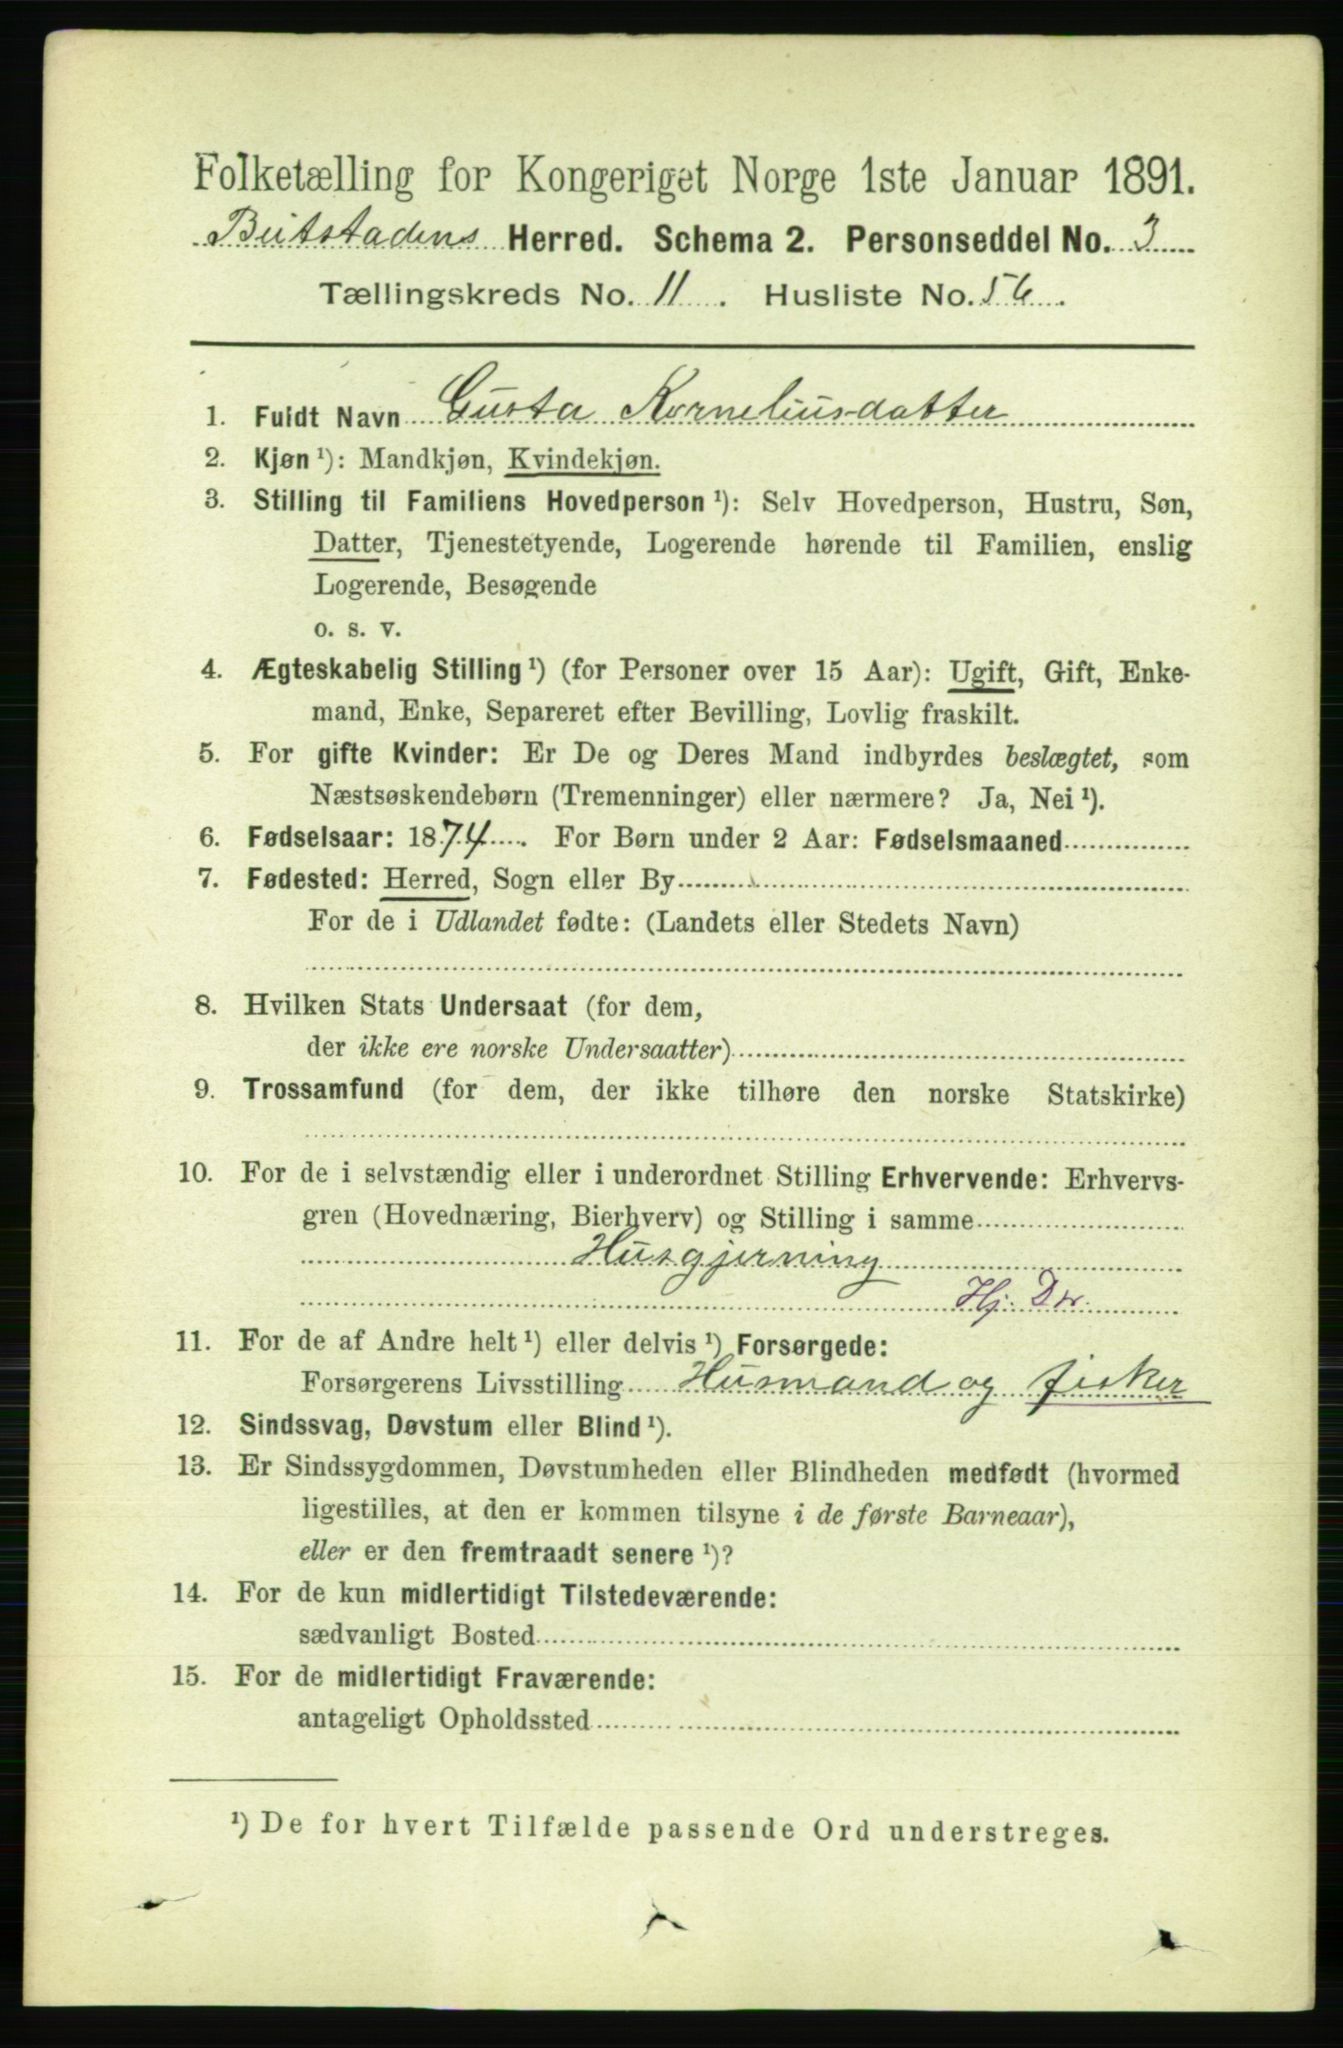 Folketælling for Kongeriget Norge 1ste Januar 1891.
Beitstadens Herred. Schema 2. Personseddel No. 3
Tællingskreds No. 11. Husliste No. 56.
1. Fuldt Navn Gusta Korneliusdatter
2. Kjøn ¹): Mandkjøn, Kvindekjøn.
3. Stilling til Familiens Hovedperson ¹): Selv Hovedperson, Hustru, Søn,
Datter, Tjenestetyende, Logerende hørende til Familien, enslig
Logerende, Besøgende
o. s. v.
4. Ægteskabelig Stilling ¹) (for Personer over 15 Aar): Ugift, Gift, Enke-
mand, Enke, Separeret efter Bevilling, Lovlig fraskilt.
5. For gifte Kvinder: Er De og Deres Mand indbyrdes beslægtet, som
Næstsøskendebørn (Tremenninger) eller nærmere? Ja, Nei ¹).
6. Fødselsaar: 1874. For Børn under 2 Aar: Fødselsmaaned
7. Fødested: Herred, Sogn eller By
For de i Udlandet fødte: (Landets eller Stedets Navn)
8. Hvilken Stats Undersaat (for dem,
der ikke ere norske Undersaatter)
9. Trossamfund (for dem, der ikke tilhøre den norske Statskirke)
10. For de i selvstændig eller i underordnet Stilling Erhvervende: Erhvervs-
gren (Hovednæring, Bierhverv) og Stilling i samme
Husgjerning
Hj. Dtr.
11. For de af Andre helt ¹) eller delvis ¹) Forsørgede:
Forsørgerens Livsstilling Husmand og fisker
12. Sindssvag, Døvstum eller Blind ¹).
13. Er Sindssygdommen, Døvstumheden eller Blindheden medfødt (hvormed
ligestilles, at den er kommen tilsyne i de første Barneaar),
eller er den fremtraadt senere ¹)?
14. For de kun midlertidigt Tilstedeværende:
sædvanligt Bosted
15. For de midlertidigt Fraværende:
antageligt Opholdssted
¹) De for hvert Tilfælde passende Ord understreges.